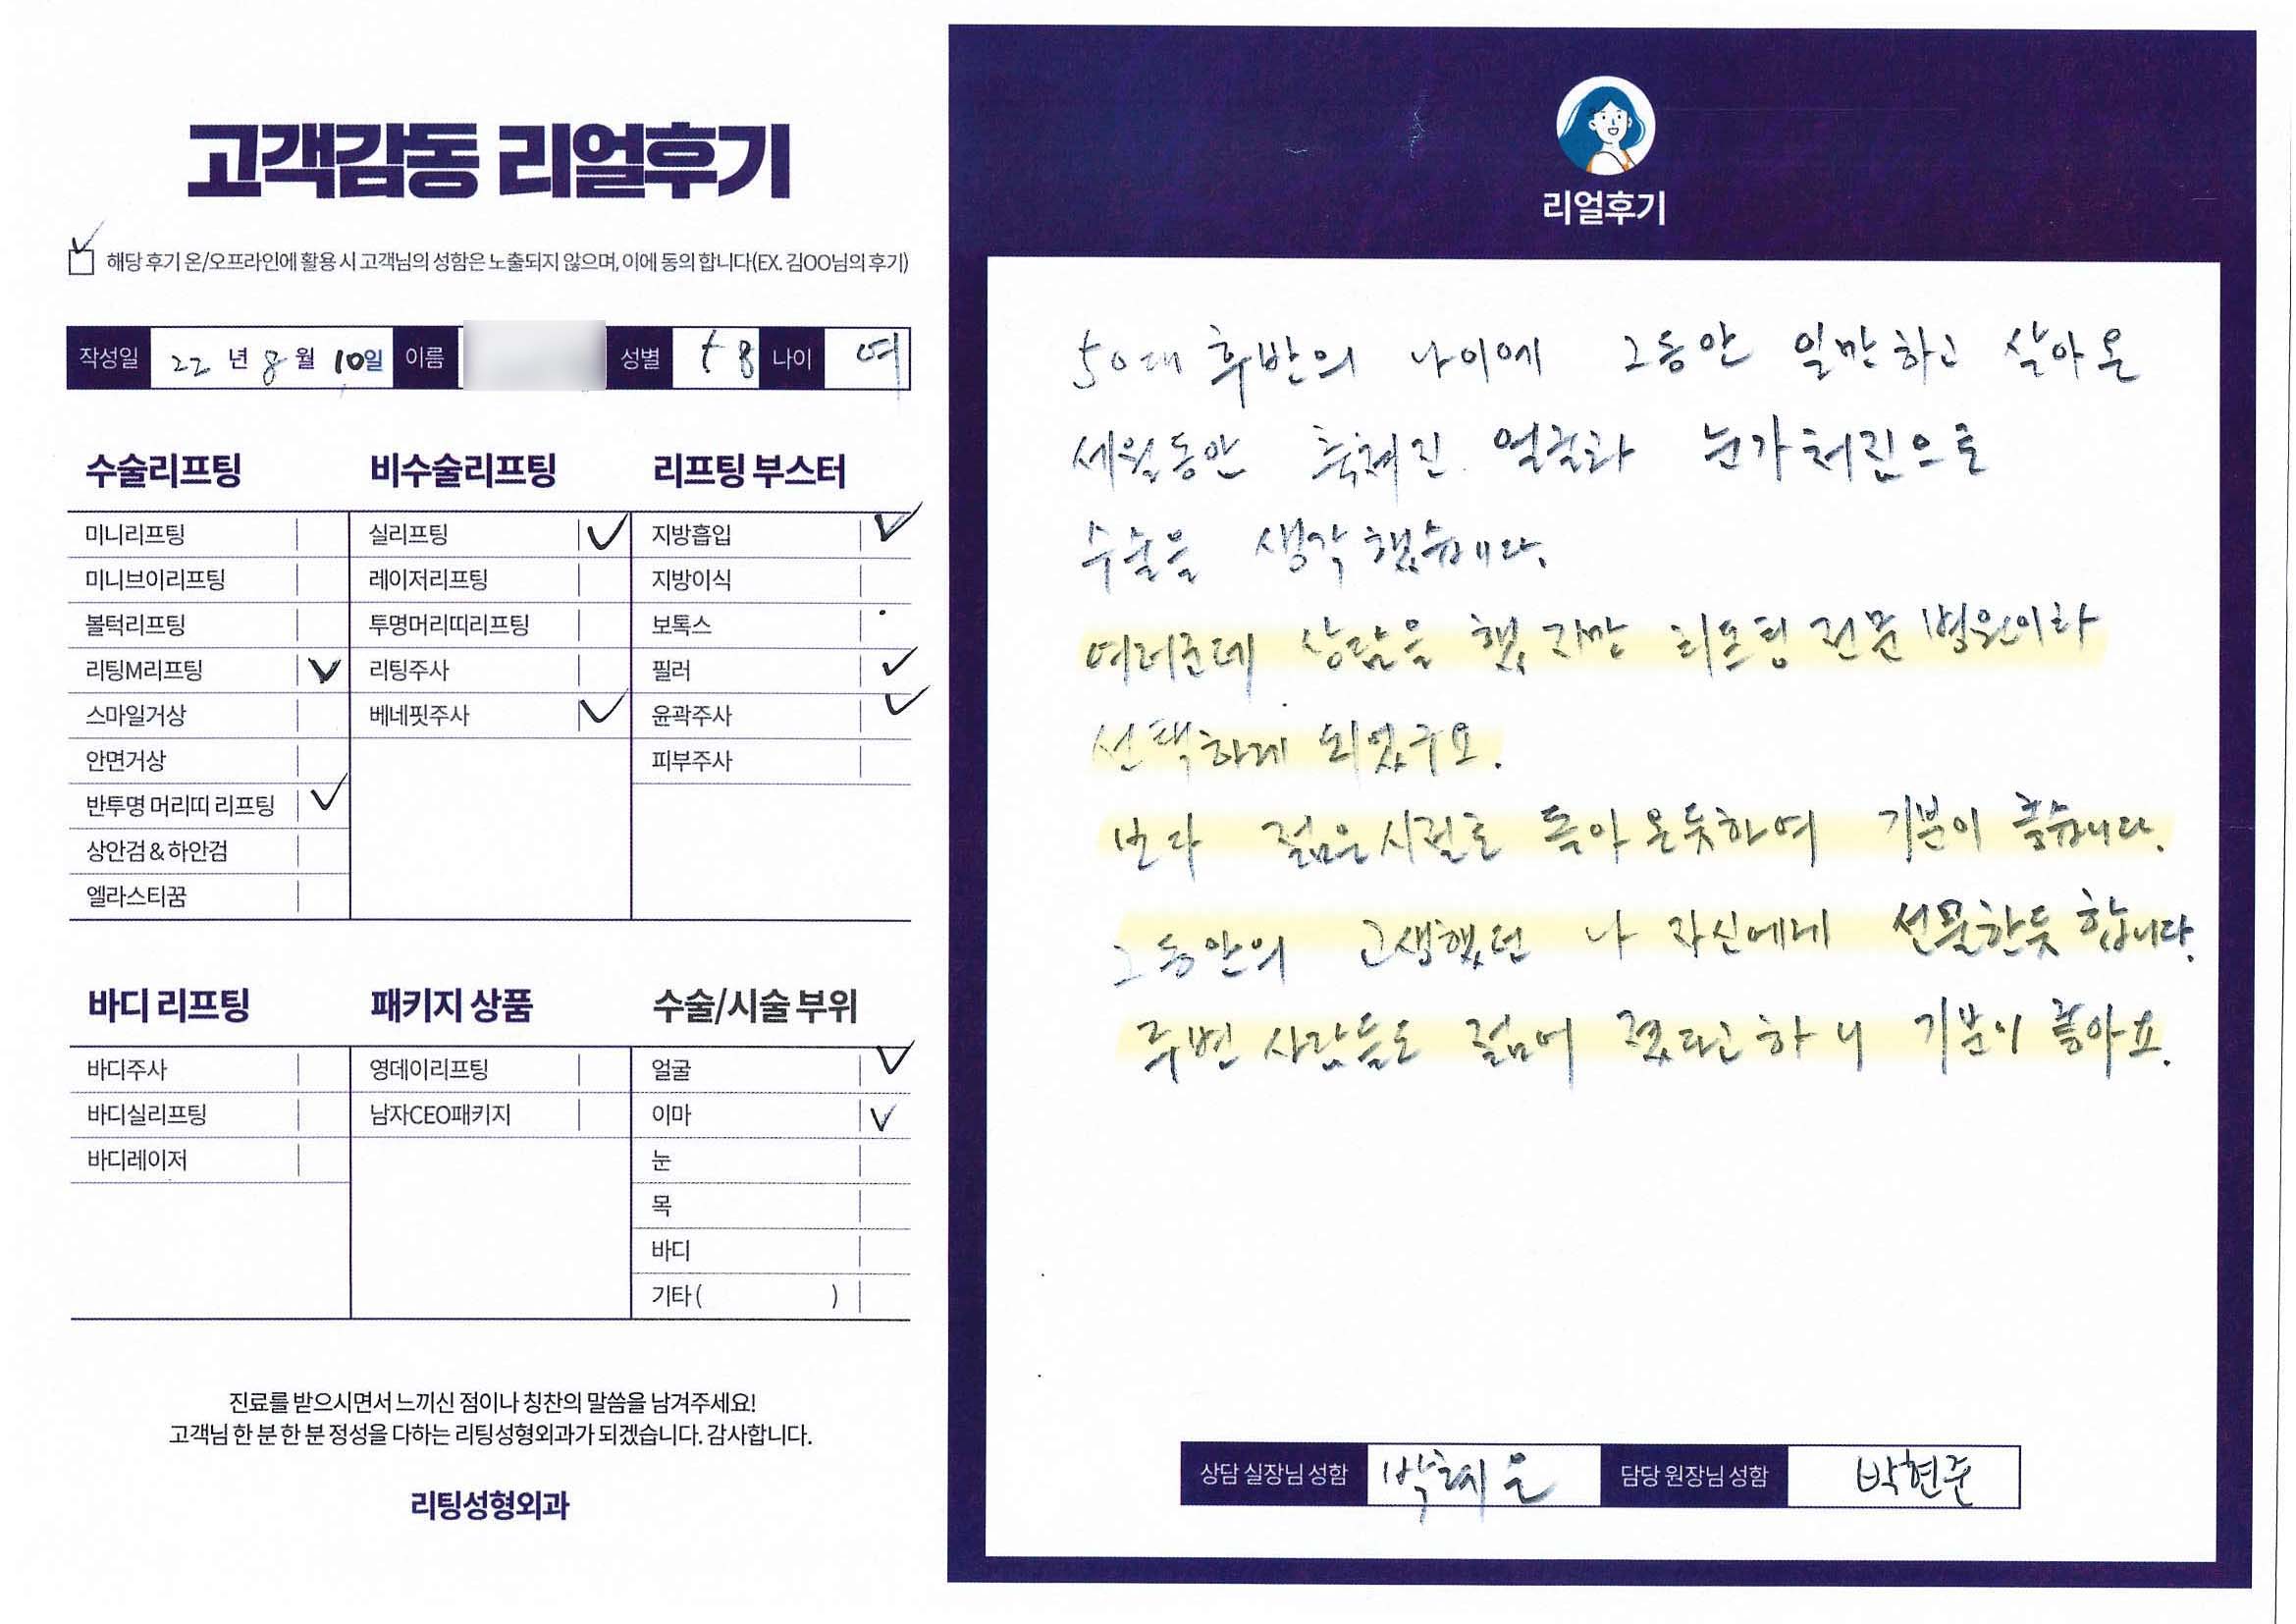 고객감동 리얼후기
해당 후기 온/오프라인에 활용 시 고객님의 성함은 노출되지 않으며, 이에 동의 합니다(EX. 김OO님의 후기)
작성일 22년 8월 10일 이름 성별 58 나이 여
수술리프팅
미니리프팅
미니브이리프팅
볼턱리프팅
리팅M리프팅
스마일거상
안면거상
반투명 머리띠 리프팅
상안검 & 하안검
엘라스티꿈
비수술리프팅
실리프팅
레이저리프팅
투명머리띠리프팅
리팅주사
베네핏주사
리프팅 부스터
지방흡입
지방이식
보톡스
필러
윤곽주사
피부주사
바디 리프팅
바디주사
바디실리프팅
바디레이저
패키지 상품
영데이리프팅
남자CEO패키지
수술/시술 부위
얼굴
이마
눈
목
바디
기타 ( )
진료를 받으시면서 느끼신 점이나 칭찬의 말씀을 남겨주세요!
고객님 한 분 한 분 정성을 다하는 리팅성형외과가 되겠습니다. 감사합니다.
리팅성형외과
리얼후기
50대 후반의 나이에 그동안 일만하고 살아온
세월동안 축쳐진 얼굴과 눈가쳐짐으로
수술을 생각했습니다.
여러군데 상담을 했지만 리프팅 전문 병원이라
선택하게 되었구요.
보다 젊은시절로 돌아온듯하여 기분이 좋습니다.
그동안의 고생했던 나 자신에게 선물한듯 합니다.
주변 사람들도 젊어 졌다고 하니 기분이 좋아요.
상담 실장님 성함 박혜은 담당 원장님 성함 박현준